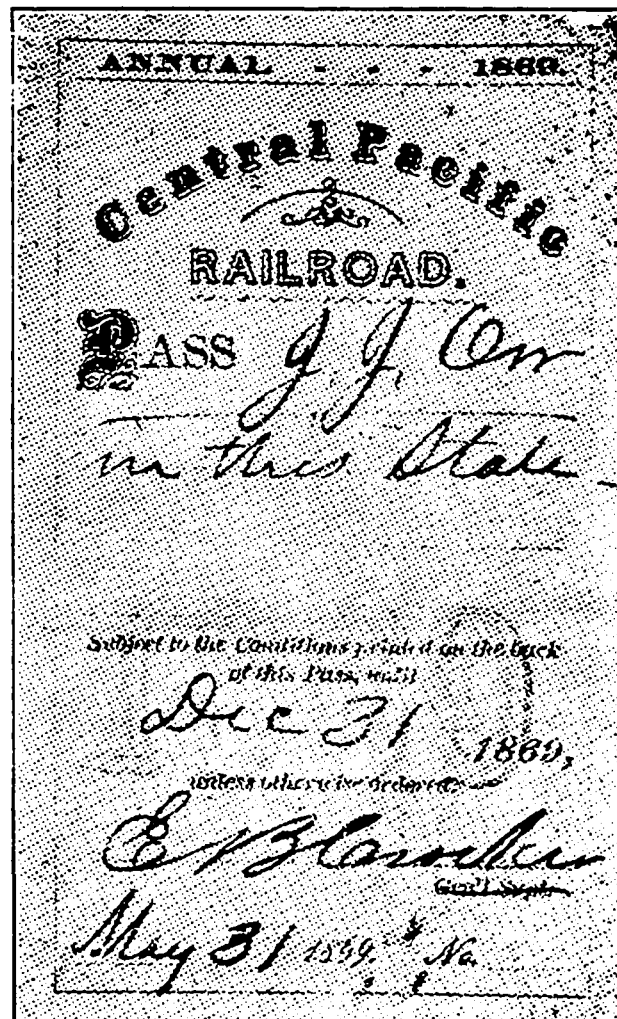 ANNUAL - - - 1869.
Central Pacific
RAILROAD.
PASS J. J. Orr
in this State
Subject to the Conditions printed on the back
of this Pass, until
Dec 31 1869,
unless otherwise ordered.
E B Crocker
Gen'l Supt.
May 31 1869. No.